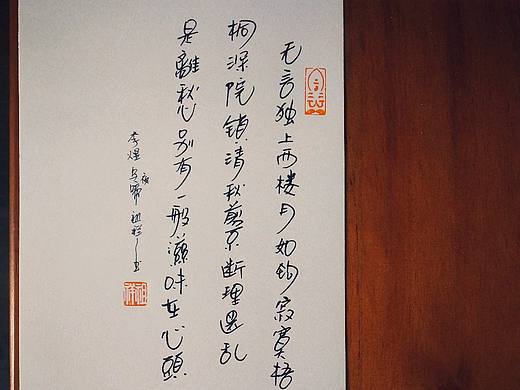 无言独上西楼月如钩寂寞梧
桐深院锁清秋剪不断理還乱
是離愁别有一般滋味在心頭
李煜乌夜啼 书